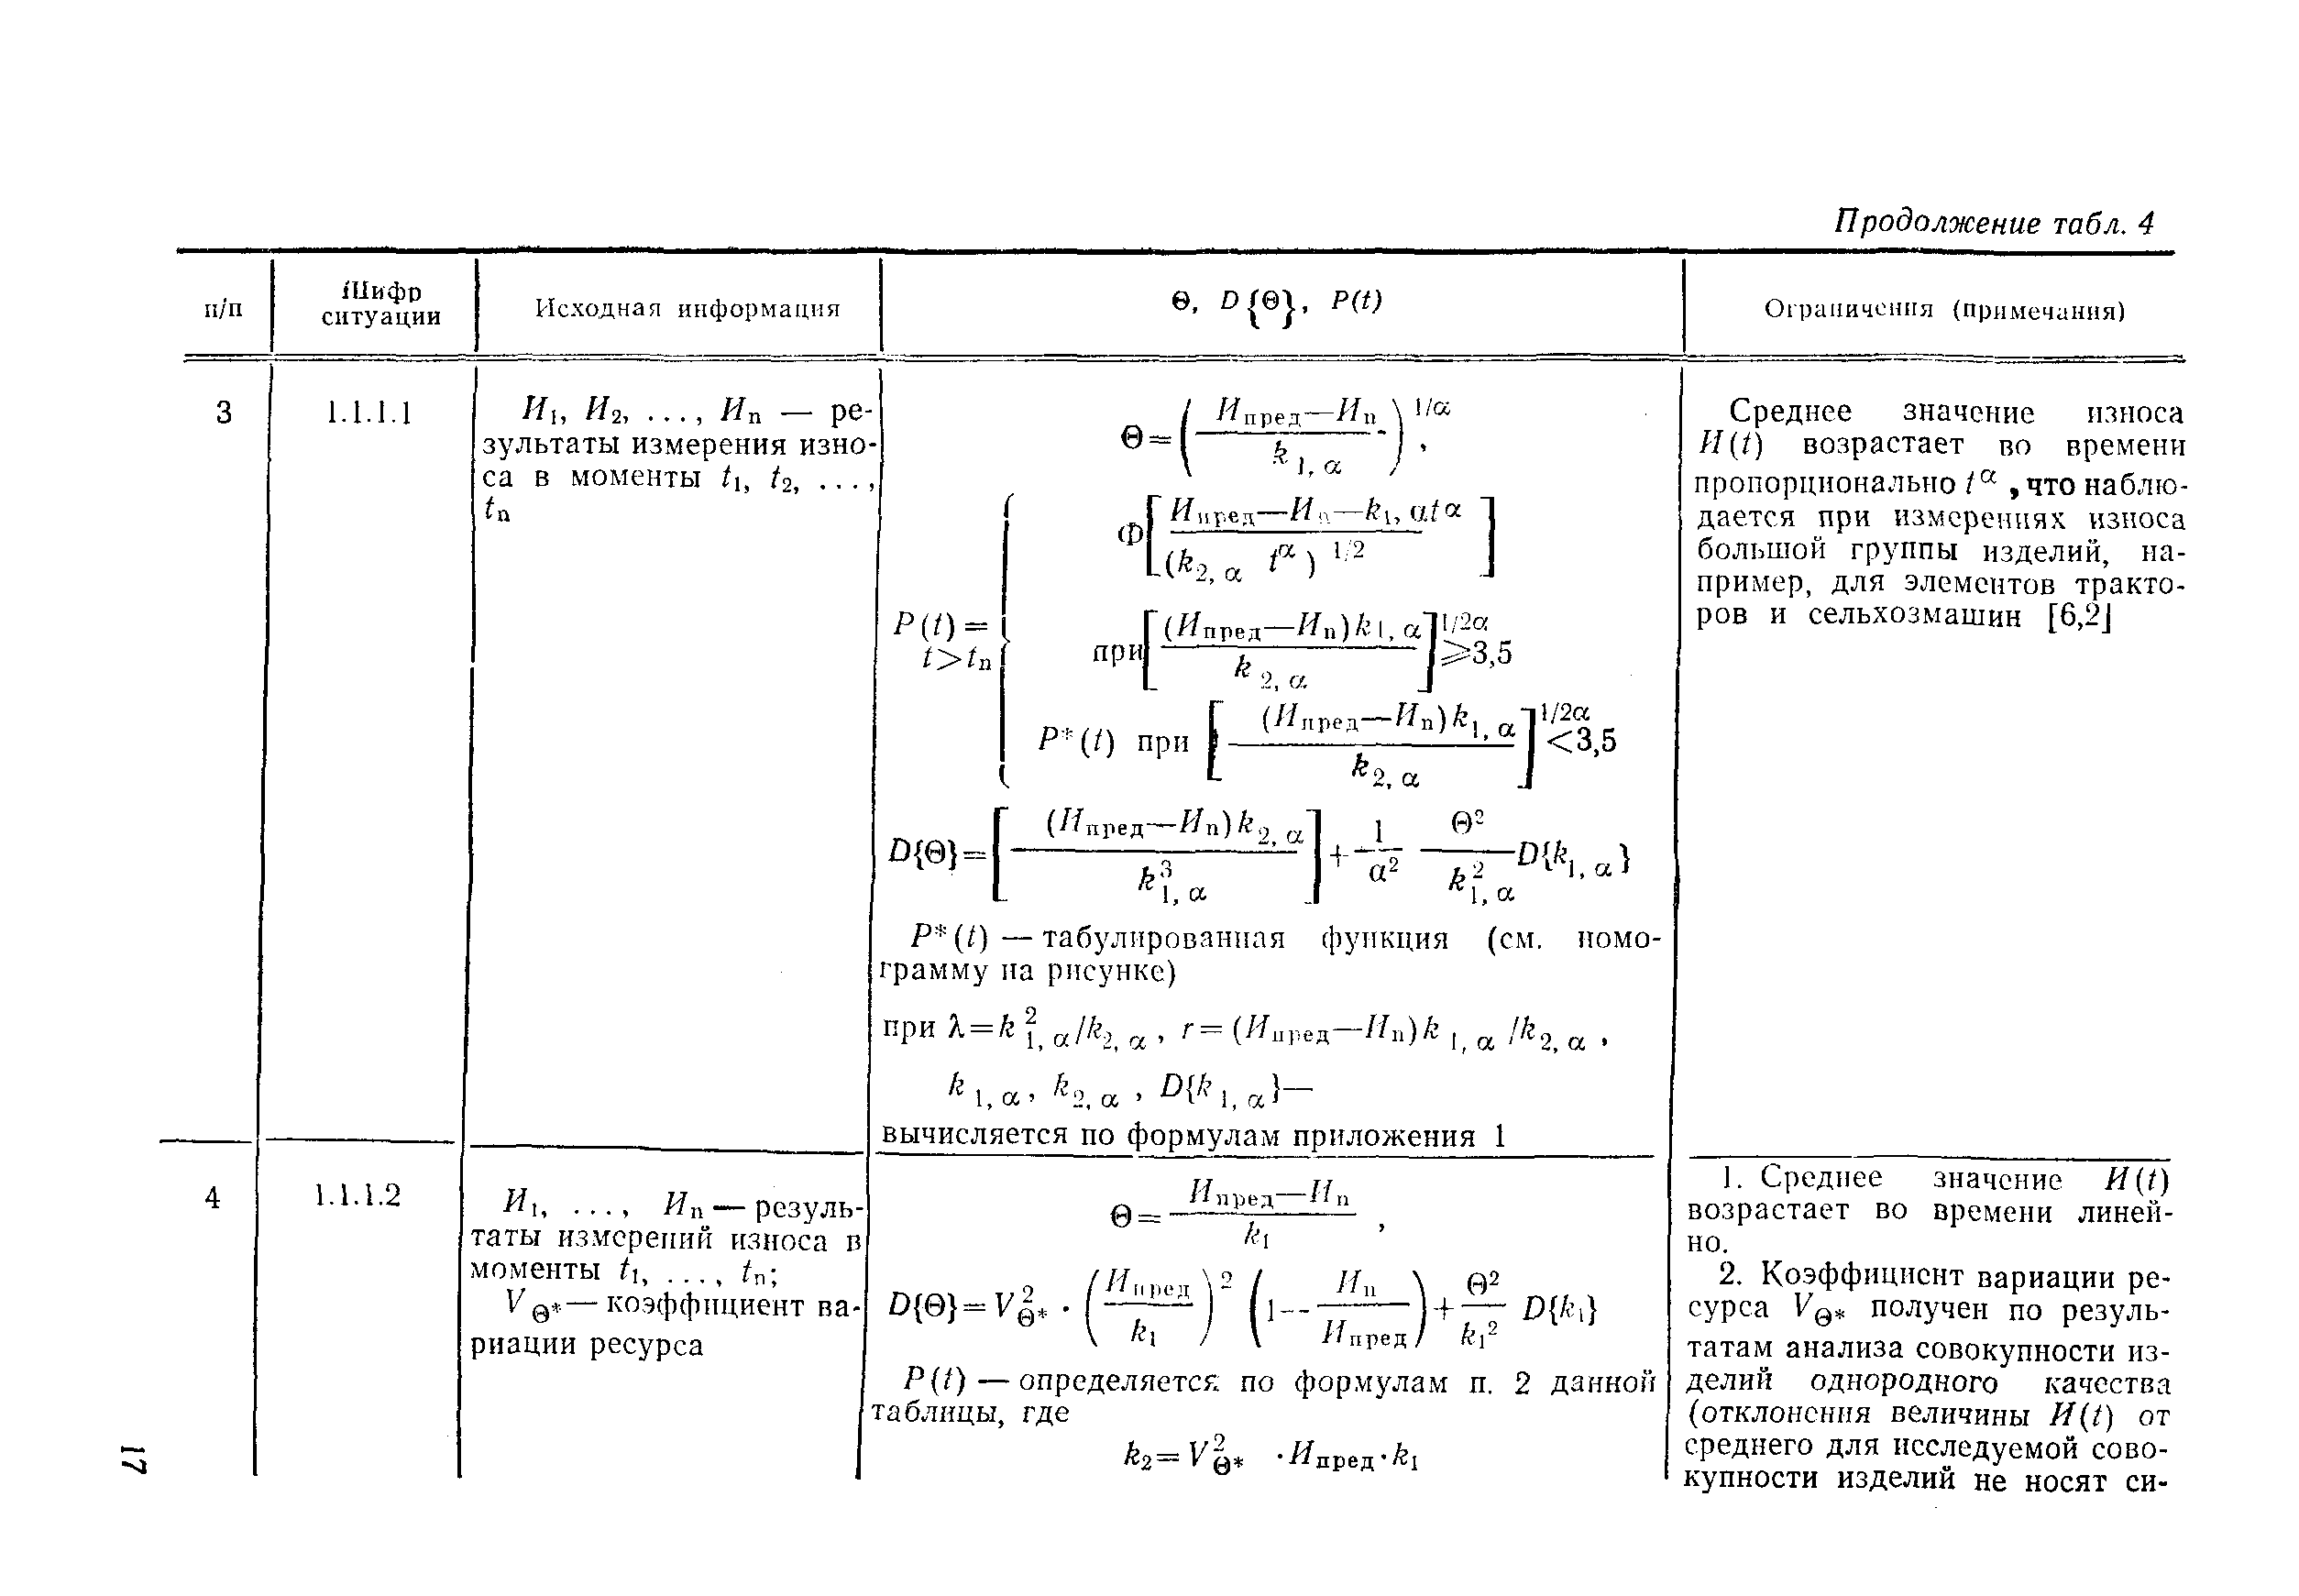 Продолжение табл. 4
п/п
Шифр
ситуации
Исходная информация
Θ, D{Θ}, P(t)
Ограничения (примечания)
3
1.1.1.1
И₁, И₂, ..., Иₙ — ре-
зультаты измерения изно-
са в моменты t₁, t₂, ...,
tₙ
Θ=((Ипред—Иₙ)/k₁,α)^1/α,
P(t)=
t>tₙ
Ф[(Ипред—Иₙ—k₁,αt^α)/(k₂,α t^α)^1/2]
при[(Ипред—Иₙ)k₁,α/k₂,α]^1/2α⩾3,5
P*(t) при [(Ипред—Иₙ)k₁,α/k₂,α]^1/2α<3,5
D{Θ}=[(Ипред—Иₙ)k₂,α/k³₁,α]+1/α² Θ²/k²₁,α D{k₁,α}
P*(t) — табулированная функция (см. номо-
грамму на рисунке)
при λ=k²₁,α/k₂,α, r=(Ипред—Иₙ)k₁,α/k₂,α,
k₁,α, k₂,α, D{k₁,α}—
вычисляется по формулам приложения 1
Среднее значение износа
И(t) возрастает во времени
пропорционально t^α, что наблю-
дается при измерениях износа
большой группы изделий, на-
пример, для элементов тракто-
ров и сельхозмашин [6,2]
4
1.1.1.2
И₁, ..., Иₙ — резуль-
таты измерений износа в
моменты t₁, ..., tₙ;
V_Θ* — коэффициент ва-
риации ресурса
Θ=(Ипред—Иₙ)/k₁,
D{Θ}=V²_Θ*·(Ипред/k₁)²(1—Иₙ/Ипред)+Θ²/k₁² D{k₁}
P(t) — определяется по формулам п. 2 данной
таблицы, где
k₂=V²_Θ*·Ипред·k₁
1. Среднее значение И(t)
возрастает во времени линей-
но.
2. Коэффициент вариации ре-
сурса V_Θ* получен по резуль-
татам анализа совокупности из-
делий однородного качества
(отклонения величины И(t) от
среднего для исследуемой сово-
купности изделий не носят си-
17